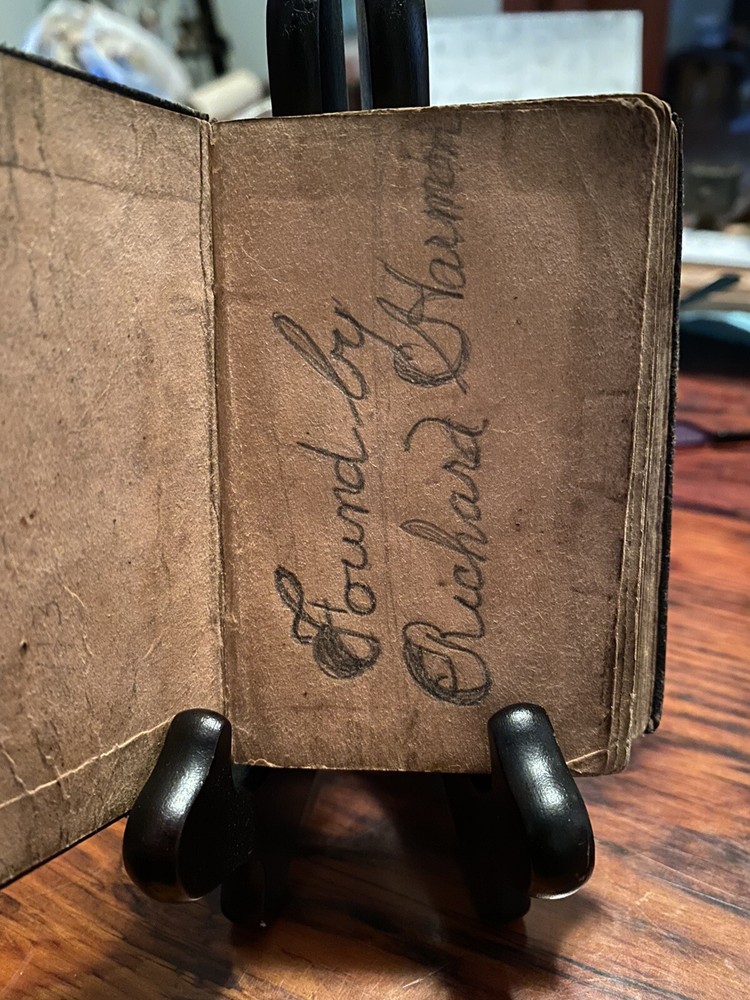 Found by
Richard Harmon